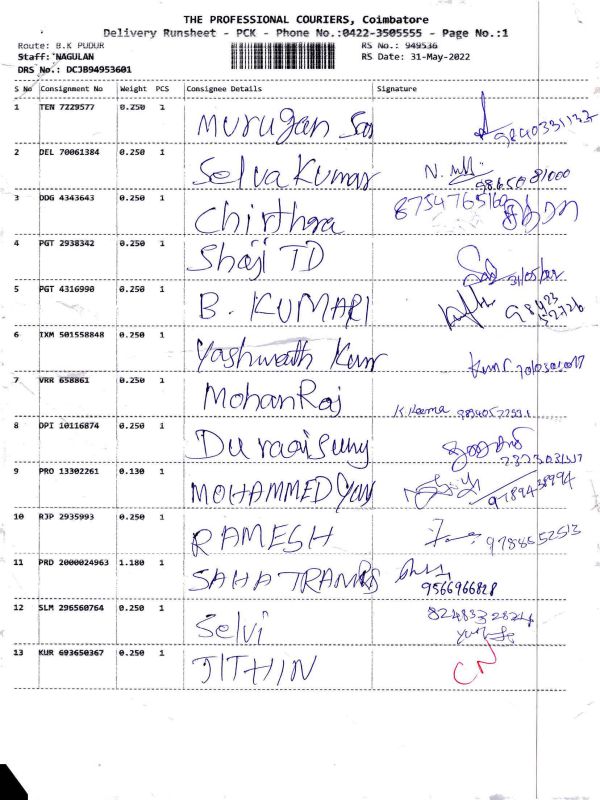 THE PROFESSIONAL COURIERS, Coimbatore
Delivery Runsheet - PCK - Phone No.:0422-3505555 - Page No.:1
Route: B.K PUDUR RS No.: 949536
Staff: NAGULAN RS Date: 31-May-2022
DRS No.: DCJB94953601
S No Consignment No Weight PCS Consignee Details Signature
1 TEN 7229577 0.250 1 Murugan 9840331137
2 DEL 70061384 0.250 1 Selva Kumar
3 DDG 4343643 0.250 1 Chirthara 8754765160
4 PGT 2938342 0.250 1 Shaji TD
5 PGT 4316990 0.250 1 B. KUMARI
6 IXM 501558848 0.250 1 Yashwath Kum
7 VRR 658861 0.250 1 MohanRaj
8 DPI 10116874 0.250 1
9 PRO 13302261 0.130 1 MOHAMMED
10 RJP 2935993 0.250 1 RAMESH 9788652513
11 PRD 2000024963 1.180 1
9566966828
12 SLM 296560764 0.250 1 Selvi
13 KUR 693650367 0.250 1 JITHIN CN